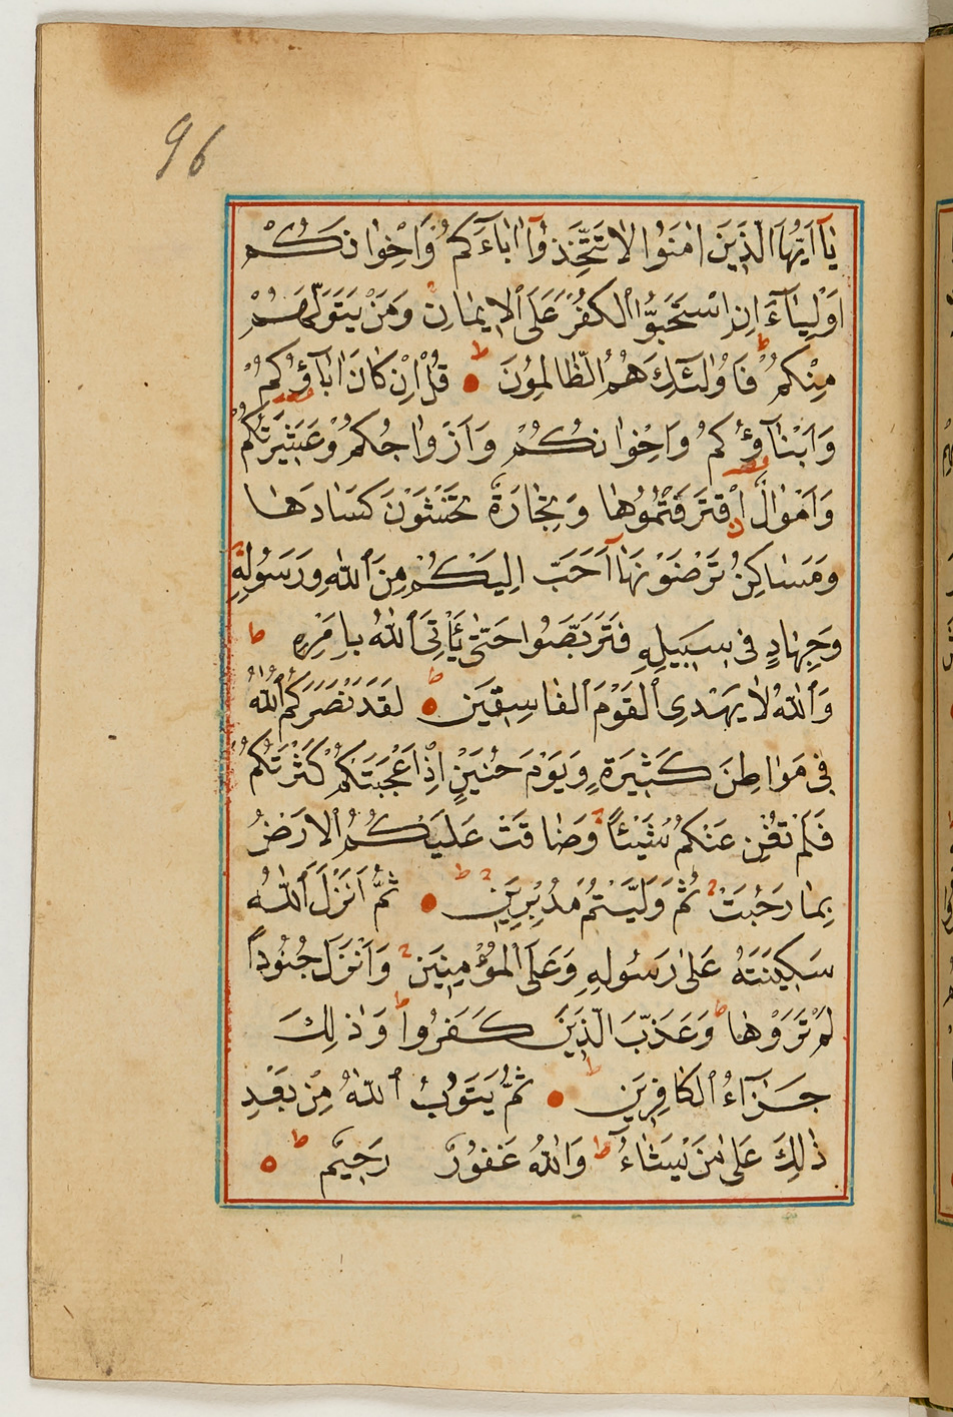 96
يٰٓا اَيُّهَا الَّذٖينَ اٰمَنُوا لَا تَتَّخِذُوٓا اٰبَٓاءَكُمْ وَاِخْوَانَكُمْ
اَوْلِيَٓاءَ اِنِ اسْتَحَبُّوا الْكُفْرَ عَلَى الْاٖيمَانِ وَمَنْ يَتَوَلَّهُمْ
مِنْكُمْ ط فَاُولٰٓئِكَ هُمُ الظَّالِمُونَ ط قُلْ اِنْ كَانَ اٰبَٓاؤُكُمْ
وَاَبْنَٓاؤُكُمْ وَاِخْوَانُكُمْ وَاَزْوَاجُكُمْ وَعَشٖيرَتُكُمْ
وَاَمْوَالٌ اقْتَرَفْتُمُوهَا وَتِجَارَةٌ تَخْشَوْنَ كَسَادَهَا
وَمَسَاكِنُ تَرْضَوْنَهَٓا اَحَبَّ اِلَيْكُمْ مِنَ اللّٰهِ وَرَسُولِهِ
وَجِهَادٍ فٖى سَبٖيلِهِ فَتَرَبَّصُوا حَتّٰى يَأْتِىَ اللّٰهُ بِاَمْرِهِ ط
وَاللّٰهُ لَا يَهْدِى الْقَوْمَ الْفَاسِقٖينَ ط لَقَدْ نَصَرَكُمُ اللّٰهُ
فٖى مَوَاطِنَ كَثٖيرَةٍ وَيَوْمَ حُنَيْنٍ اِذْ اَعْجَبَتْكُمْ كَثْرَتُكُمْ
فَلَمْ تُغْنِ عَنْكُمْ شَيْئًا وَضَاقَتْ عَلَيْكُمُ الْاَرْضُ
بِمَا رَحُبَتْ ثُمَّ وَلَّيْتُمْ مُدْبِرٖينَ ط ثُمَّ اَنْزَلَ اللّٰهُ
سَكٖينَتَهُ عَلٰى رَسُولِهِ وَعَلَى الْمُؤْمِنٖينَ وَاَنْزَلَ جُنُودًا
لَمْ تَرَوْهَا ط وَعَذَّبَ الَّذٖينَ كَفَرُوا ط وَذٰلِكَ
جَزَٓاءُ الْكَافِرٖينَ ط ثُمَّ يَتُوبُ اللّٰهُ مِنْ بَعْدِ
ذٰلِكَ عَلٰى مَنْ يَشَٓاءُ ط وَاللّٰهُ غَفُورٌ رَحٖيمٌ ط